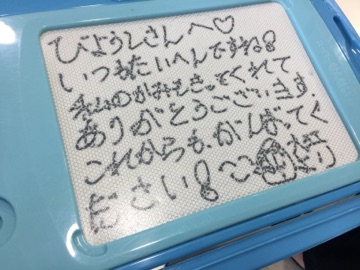 びようしさんへ♡
いつもたいへんですね！
私のかみもきってくれて
ありがとうございます．
これからも、がんばってく
ださい！